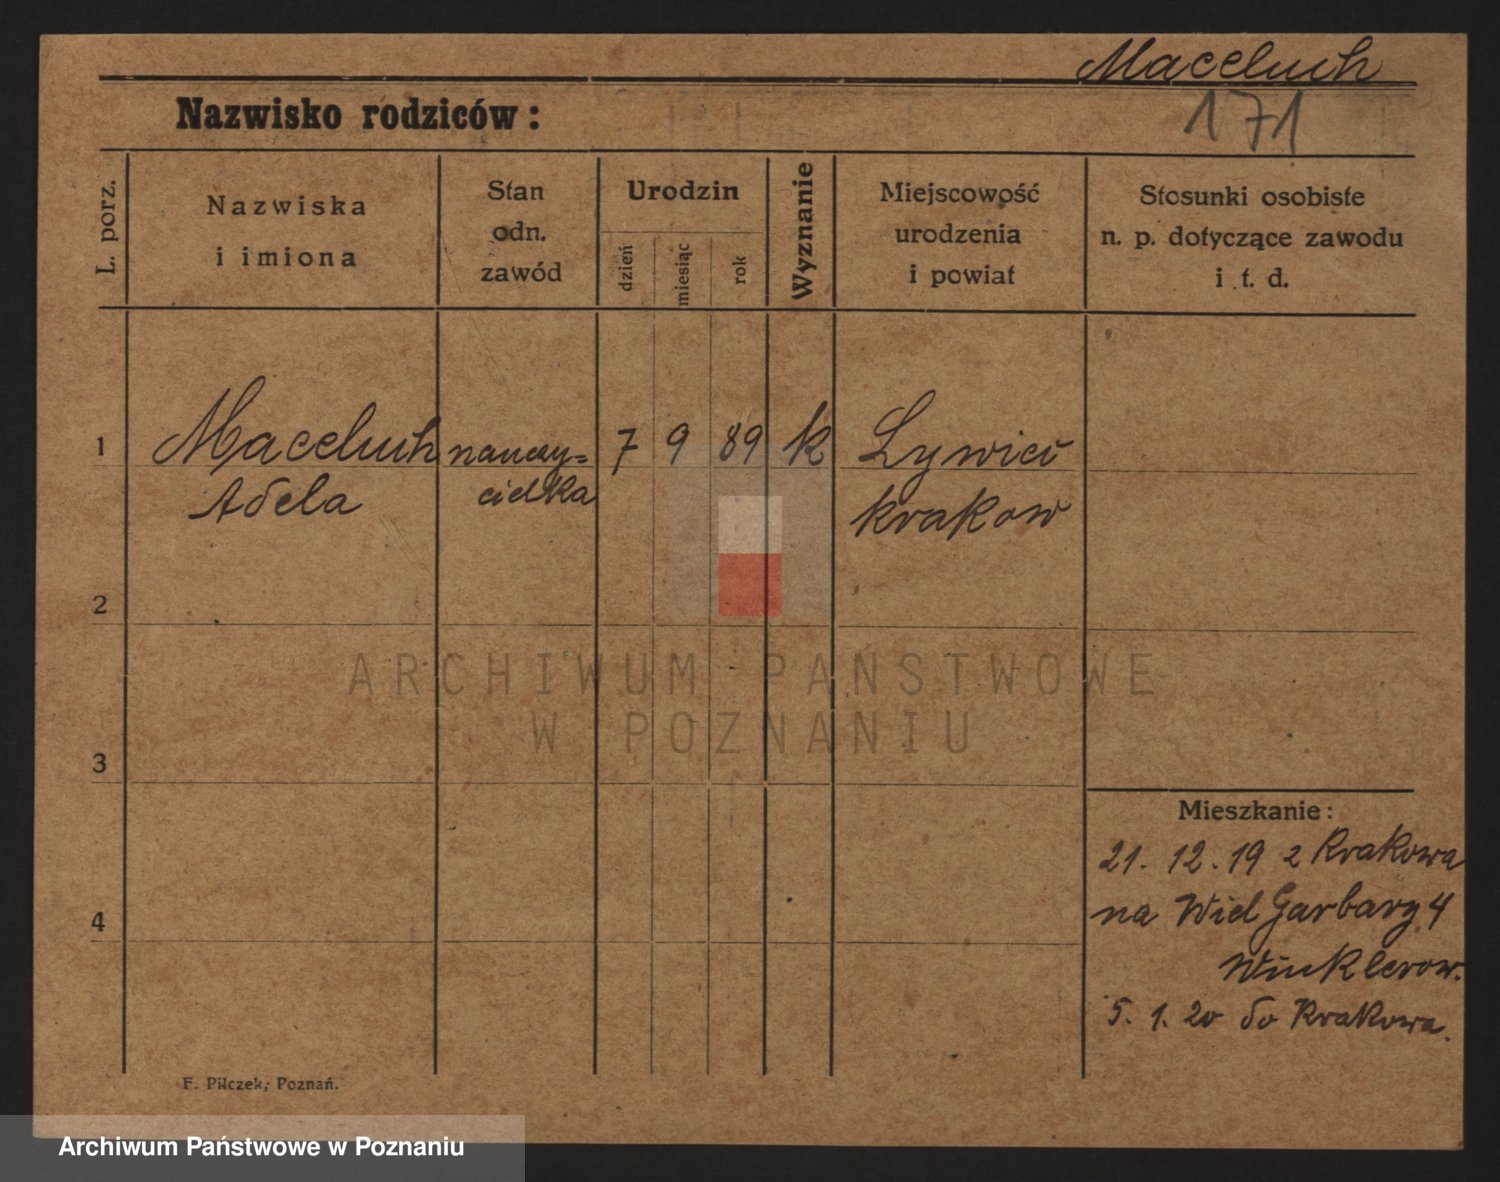 Maceluch
171
Nazwisko rodziców:
L. porz.
Nazwiska
i imiona
Stan
odn.
zawód
Urodzin
dzień
miesiąc
rok
Wyznanie
Miejscowość
urodzenia
i powiat
Stosunki osobiste
n. p. dotyczące zawodu
i t. d.
1
Maceluch nauczy= 7 9 89 k Żywiec
Adela cielka Krakow
2
ARCHIWUM PAŃSTWOWE
W POZNANIU
3
Mieszkanie:
21. 12. 19 z Krakowa
4
na Wiel Garbary 4
Winklerow.
5. 1. 20 do Krakowa.
F. Pilczek, Poznań.
Archiwum Państwowe w Poznaniu